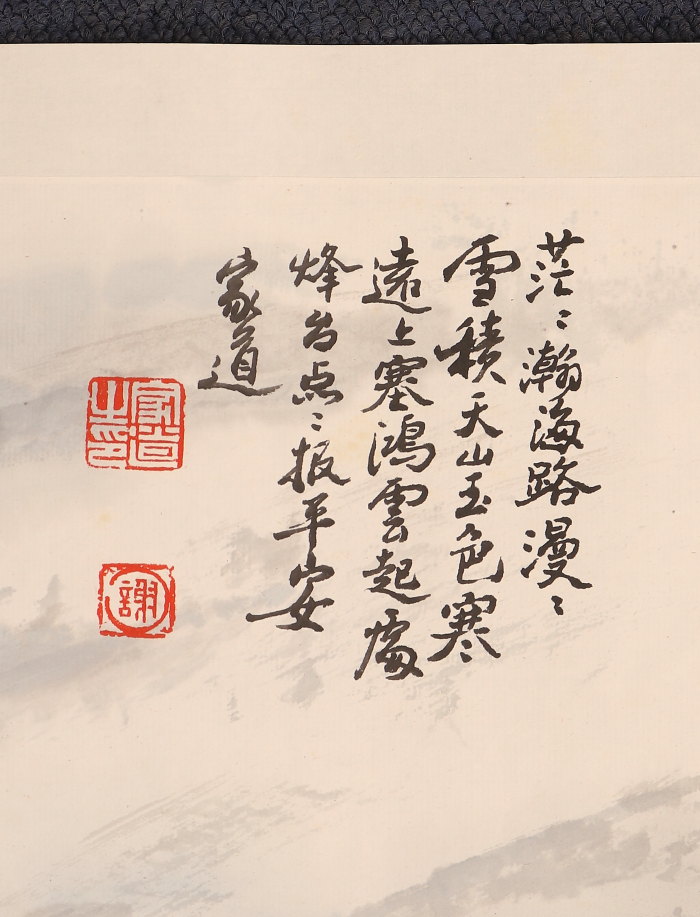 茫〻瀚海路漫〻
雪積天山玉色寒
遠上塞鴻雲起處
烽台点〻报平安
家道
家道之印
謝